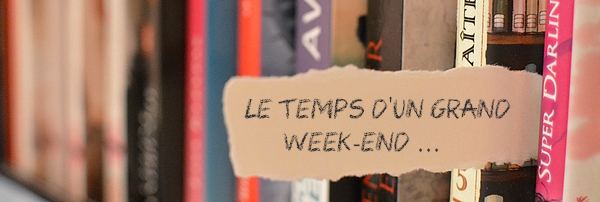 LE TEMPS D'UN GRAND
WEEK-END ...
SUPER DARLIN